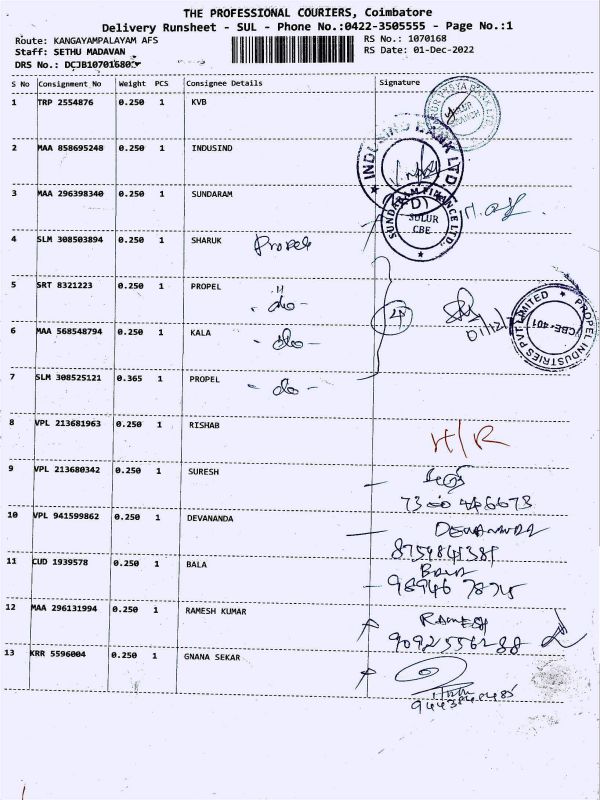 THE PROFESSIONAL COURIERS, Coimbatore
Delivery Runsheet - SUL - Phone No.:0422-3505555 - Page No.:1
Route: KANGAYAMPALAYAM AFS
RS No.: 1070168
Staff: SETHU MADAVAN
RS Date: 01-Dec-2022
DRS No.: DCJB1070168
S No Consignment No Weight PCS Consignee Details Signature
1 TRP 2554876 0.250 1 KVB
2 MAA 858695248 0.250 1 INDUSIND
INDUSIND BANK LTD.
3 MAA 296398340 0.250 1 SUNDARAM
SUNDARAM FINANCE LTD.,
SULUR
CBE
4 SLM 308503894 0.250 1 SHARUK Propel
5 SRT 8321223 0.250 1 PROPEL - do -
4
PROPEL INDUSTRIES PVT LIMITED
CBE-401
6 MAA 568548794 0.250 1 KALA - do -
7 SLM 308525121 0.365 1 PROPEL - do -
8 VPL 213681963 0.250 1 RISHAB H/R
9 VPL 213680342 0.250 1 SURESH
10 VPL 941599862 0.250 1 DEVANANDA
11 CUD 1939578 0.250 1 BALA Bala
12 MAA 296131994 0.250 1 RAMESH KUMAR RAMESH
9092556288
13 KRR 5596004 0.250 1 GNANA SEKAR